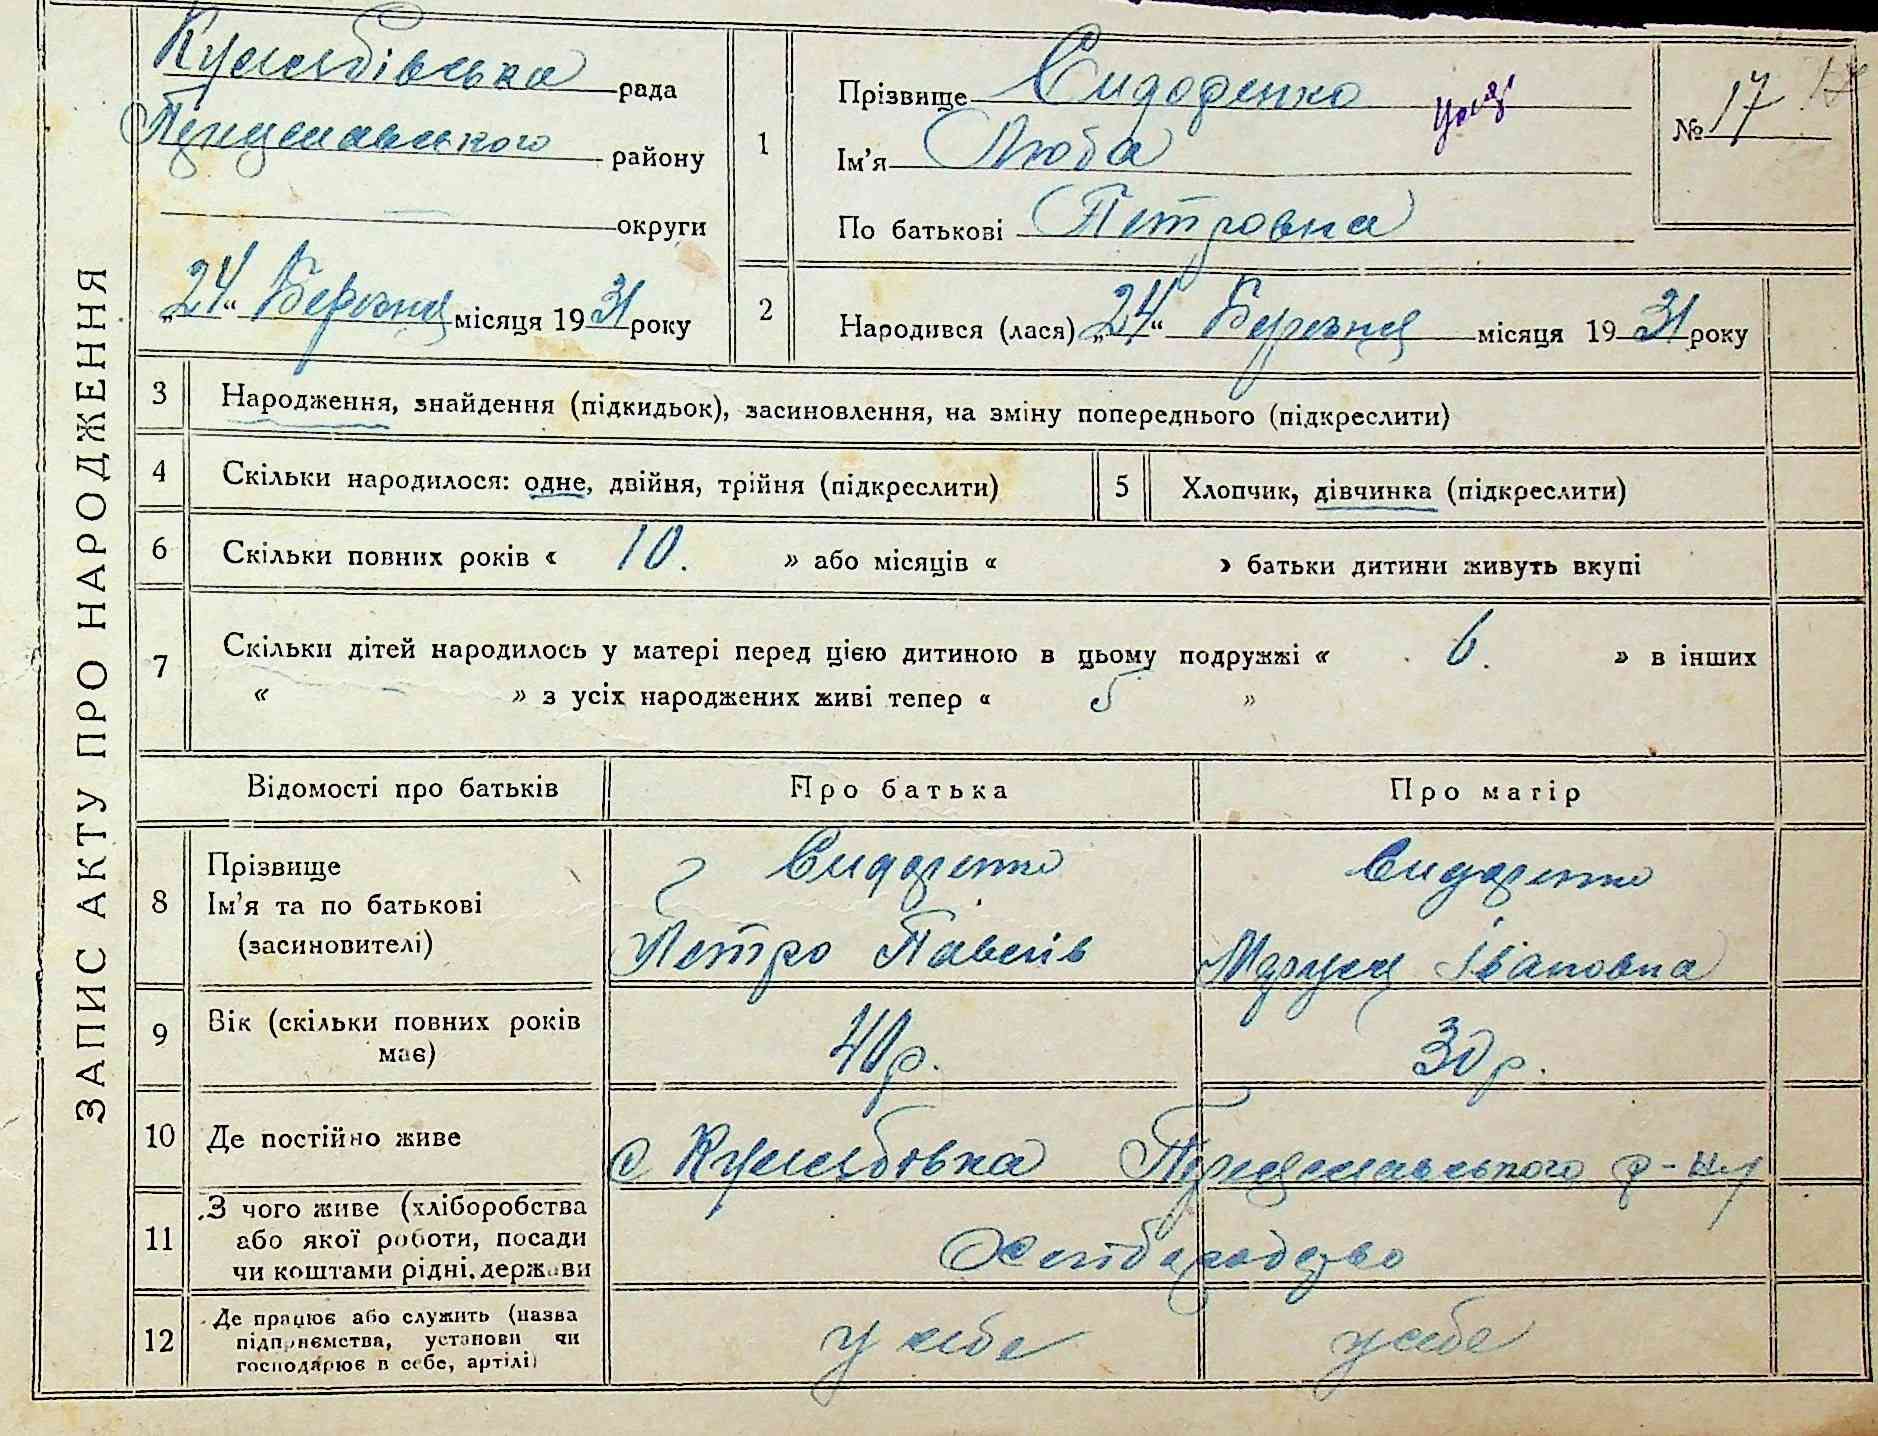 ЗАПИС АКТУ ПРО НАРОДЖЕННЯ
рада
району
округи
„24“ Березня місяця 1931 року
1
Прізвище Сидоренко
Ім'я Люба
По батькові Петровна
№ 17
2
Народився (лася) „24“ Березня місяця 1931 року
3
Народження, знайдення (підкидьок), засиновлення, на зміну попереднього (підкреслити)
4
Скільки народилося: одне, двійня, трійня (підкреслити)
5
Хлопчик, дівчинка (підкреслити)
6
Скільки повних років « 10. » або місяців « » батьки дитини живуть вкупі
7
Скільки дітей народилось у матері перед цією дитиною в цьому подружжі « 6. » в інших
« – » з усіх народжених живі тепер « 5 »
Відомості про батьків
Про батька
Про матір
8
Прізвище
Ім'я та по батькові
(засиновителі)
Сидоренко
Петро Павлів
Сидоренко
Маруся Івановна
9
Вік (скільки повних років
має)
40 р.
30 р.
10
Де постійно живе
с
р-ну
11
З чого живе (хліборобства
або якої роботи, посади
чи коштами рідні, держави
12
Де працює або служить (назва
підприємства, установи чи
господарює в себе, артілі)
у себе
у себе